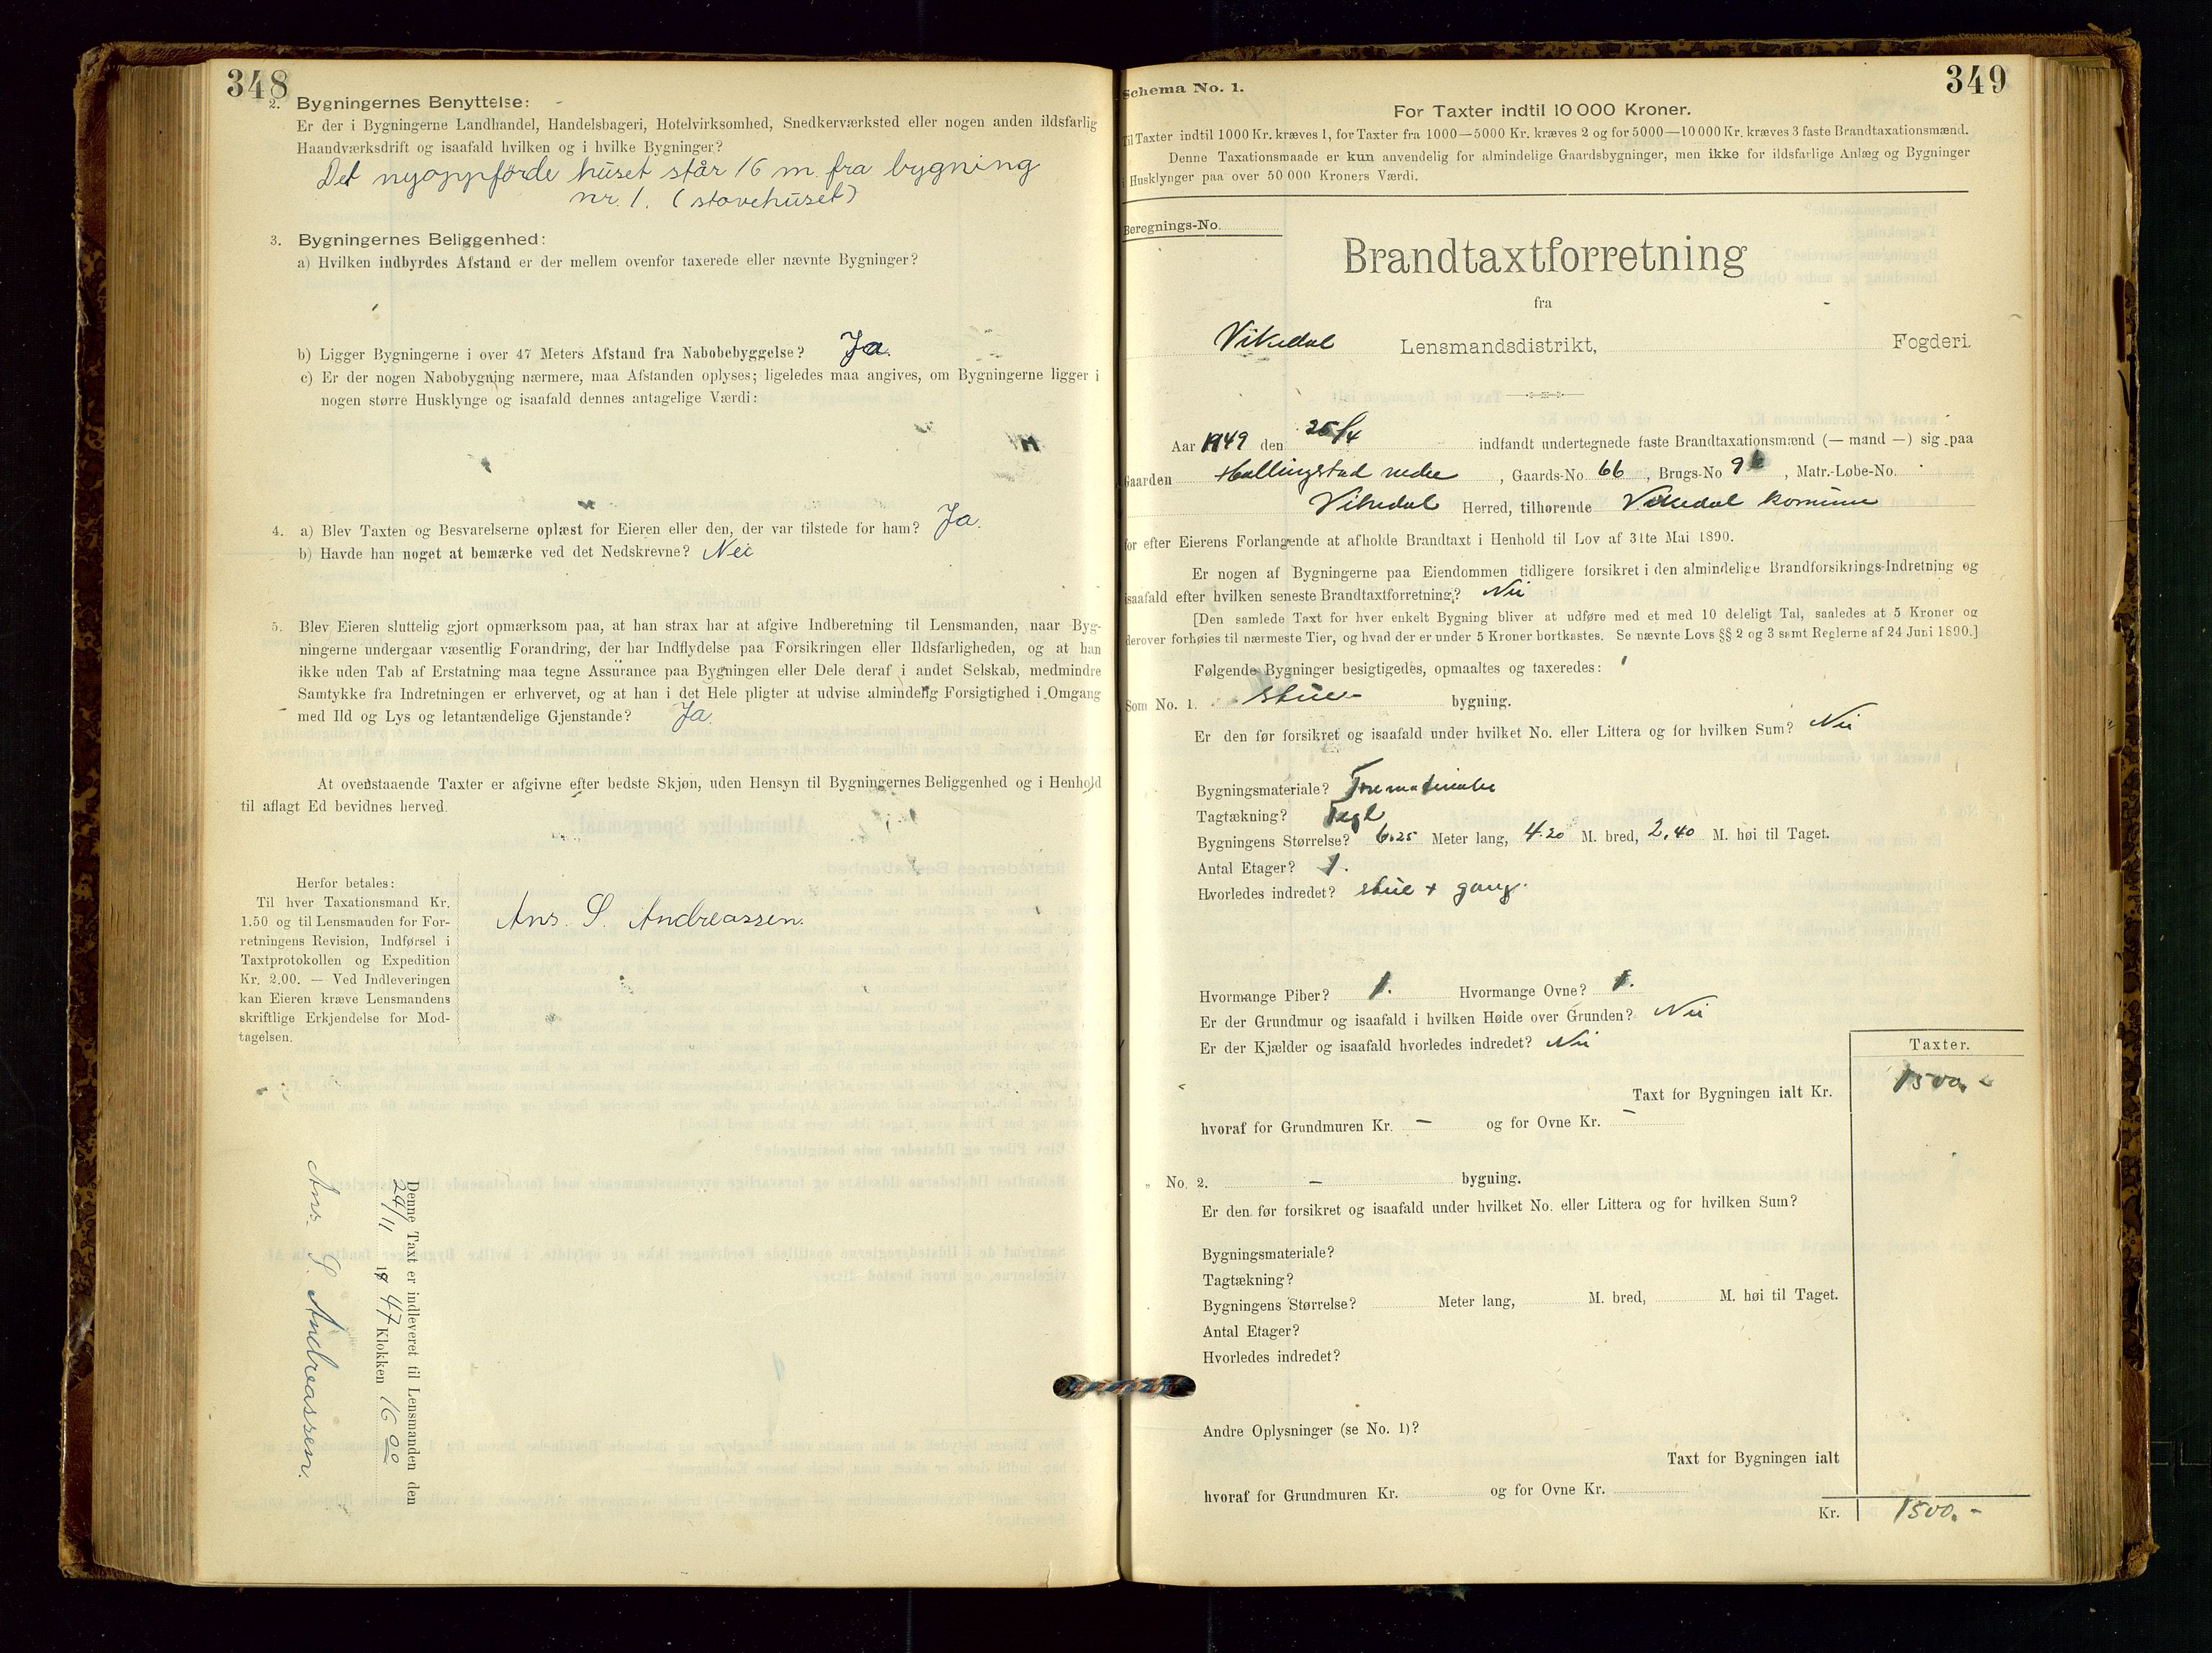 348
2. Bygningernes Benyttelse:
Er der i Bygningerne Landhandel, Handelsbageri, Hotelvirksomhed, Snedkerværksted eller nogen anden ildsfarlig
Haandværksdrift og isaafald hvilken og i hvilke Bygninger?
Det nyoppförde huset står 16 m. fra bygning
nr. 1. (stovehuset)
3. Bygningernes Beliggenhed:
a) Hvilken indbyrdes Afstand er der mellem ovenfor taxerede eller nævnte Bygninger?
b) Ligger Bygningerne i over 47 Meters Afstand fra Nabobebyggelse? Ja.
c) Er der nogen Nabobygning nærmere, maa Afstanden oplyses; ligeledes maa angives, om Bygningerne ligger i
nogen større Husklynge og isaafald dennes antagelige Værdi:
4. a) Blev Taxten og Besvarelserne oplæst for Eieren eller den, der var tilstede for ham? Ja.
b) Havde han noget at bemærke ved det Nedskrevne? Nei
5. Blev Eieren sluttelig gjort opmærksom paa, at han strax har at afgive Indberetning til Lensmanden, naar Byg-
ningerne undergaar væsentlig Forandring, der har Indflydelse paa Forsikringen eller Ildsfarligheden, og at han
ikke uden Tab af Erstatning maa tegne Assurance paa Bygningen eller Dele deraf i andet Selskab, medmindre
Samtykke fra Indretningen er erhvervet, og at han i det Hele pligter at udvise almindelig Forsigtighed i Omgang
med Ild og Lys og letantændelige Gjenstande? Ja.
At ovenstaaende Taxter er afgivne efter bedste Skjøn, uden Hensyn til Bygningernes Beliggenhed og i Henhold
til aflagt Ed bevidnes herved.
Herfor betales:
Til hver Taxationsmand Kr.
1.50 og til Lensmanden for For-
retningens Revision, Indførsel i
Taxtprotokollen og Expedition
Kr. 2.00. — Ved Indleveringen
kan Eieren kræve Lensmandens
skriftlige Erkjendelse for Mod-
tagelsen.
Ans. S. Andreassen.
Denne Taxt er indleveret til Lensmanden den
24/11 19 47 Klokken 16 00
Ans. S. Andreassen.
349
Schema No. 1.
For Taxter indtil 10 000 Kroner.
Til Taxter indtil 1000 Kr. kræves 1, for Taxter fra 1000—5000 Kr. kræves 2 og for 5000—10000 Kr. kræves 3 faste Brandtaxationsmænd.
Denne Taxationsmaade er kun anvendelig for almindelige Gaardsbygninger, men ikke for ildsfarlige Anlæg og Bygninger
i Husklynger paa over 50 000 Kroners Værdi.
Beregnings-No.
Brandtaxtforretning
fra
Vikedal Lensmandsdistrikt, Fogderi.
Aar 1949 den 25/4 indfandt undertegnede faste Brandtaxationsmænd (— mand —) sig paa
Gaarden Hallingstad nedre, Gaards-No 66, Brugs-No 9, Matr.-Løbe-No.
Vikedal Herred, tilhørende Vikedal komune
for efter Eierens Forlangende at afholde Brandtaxt i Henhold til Lov af 31te Mai 1890.
Er nogen af Bygningerne paa Eiendommen tidligere forsikret i den almindelige Brandforsikrings-Indretning og
isaafald efter hvilken seneste Brandtaxtforretning? Nei
[Den samlede Taxt for hver enkelt Bygning bliver at udføre med et med 10 deleligt Tal, saaledes at 5 Kroner og
derover forhøies til nærmeste Tier, og hvad der er under 5 Kroner bortkastes. Se nævnte Lovs §§ 2 og 3 samt Reglerne af 24 Juni 1890.]
Følgende Bygninger besigtigedes, opmaaltes og taxeredes:
Som No. 1. stue- bygning.
Er den før forsikret og isaafald under hvilket No. eller Littera og for hvilken Sum? Nei
Bygningsmateriale? Trematerialer
Tagtækning? Tegl
Bygningens Størrelse? 6.25 Meter lang, 4.20 M. bred, 2,40 M. høi til Taget.
Antal Etager? 1.
Hvorledes indredet? stue + gang.
Hvormange Piber? 1. Hvormange Ovne? 1.
Er der Grundmur og isaafald i hvilken Høide over Grunden? Nei
Er der Kjælder og isaafald hvorledes indredet? Nei
Taxter.
Taxt for Bygningen ialt Kr. 1500,-
hvoraf for Grundmuren Kr. - og for Ovne Kr. -
" No. 2. - bygning.
Er den før forsikret og isaafald under hvilket No. eller Littera og for hvilken Sum?
Bygningsmateriale?
Tagtækning?
Bygningens Størrelse? Meter lang, M. bred, M. høi til Taget.
Antal Etager?
Hvorledes indredet?
Andre Oplysninger (se No. 1)?
Taxt for Bygningen ialt
hvoraf for Grundmuren Kr. og for Ovne Kr.
Kr. 1500.-